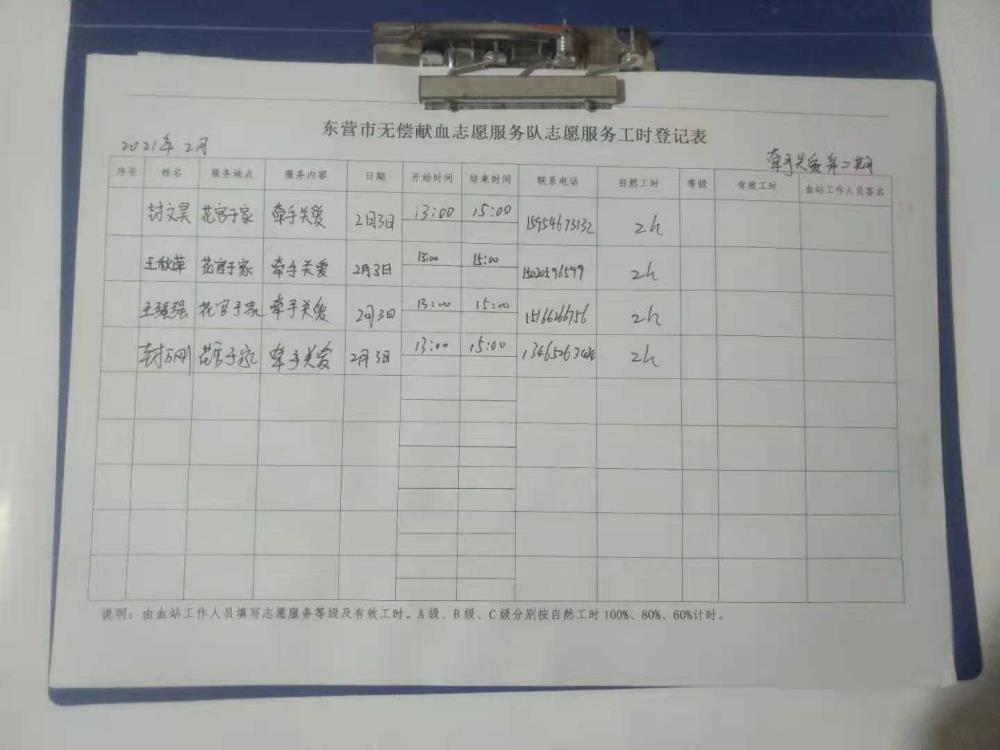 东营市无偿献血志愿服务队志愿服务工时登记表
2021年2月 牵手关爱第二期
序号 姓名 服务地点 服务内容 日期 开始时间 结束时间 联系电话 自然工时 等级 有效工时 血站工作人员签名
封文昊 花官于家 牵手关爱 2月3日 13:00 15:00 15954673132 2h
王秋萍 花官于家 牵手关爱 2月3日 13:00 15:00 2h
王强强 花官于家 牵手关爱 2月3日 13:00 15:00 15166266756 2h
封万刚 花官于家 牵手关爱 2月3日 13:00 15:00 2h
说明：由血站工作人员填写志愿服务等级及有效工时。A级、B级、C级分别按自然工时100%、80%、60%计时。